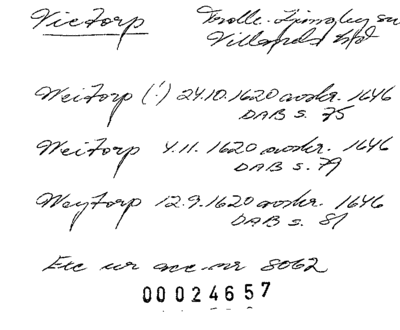 Victorp Trolle-Ljungby sn
Villands hd
Weitorp (!) 24.10.1620 avskr. 1646
DAB s. 75
Weitorp 4.11. 1620 avskr. 1646
DAB s. 79
Weytorp 12.9.1620 avskr. 1646
DAB s. 81
Exc ur acc.nr 8062
00024657